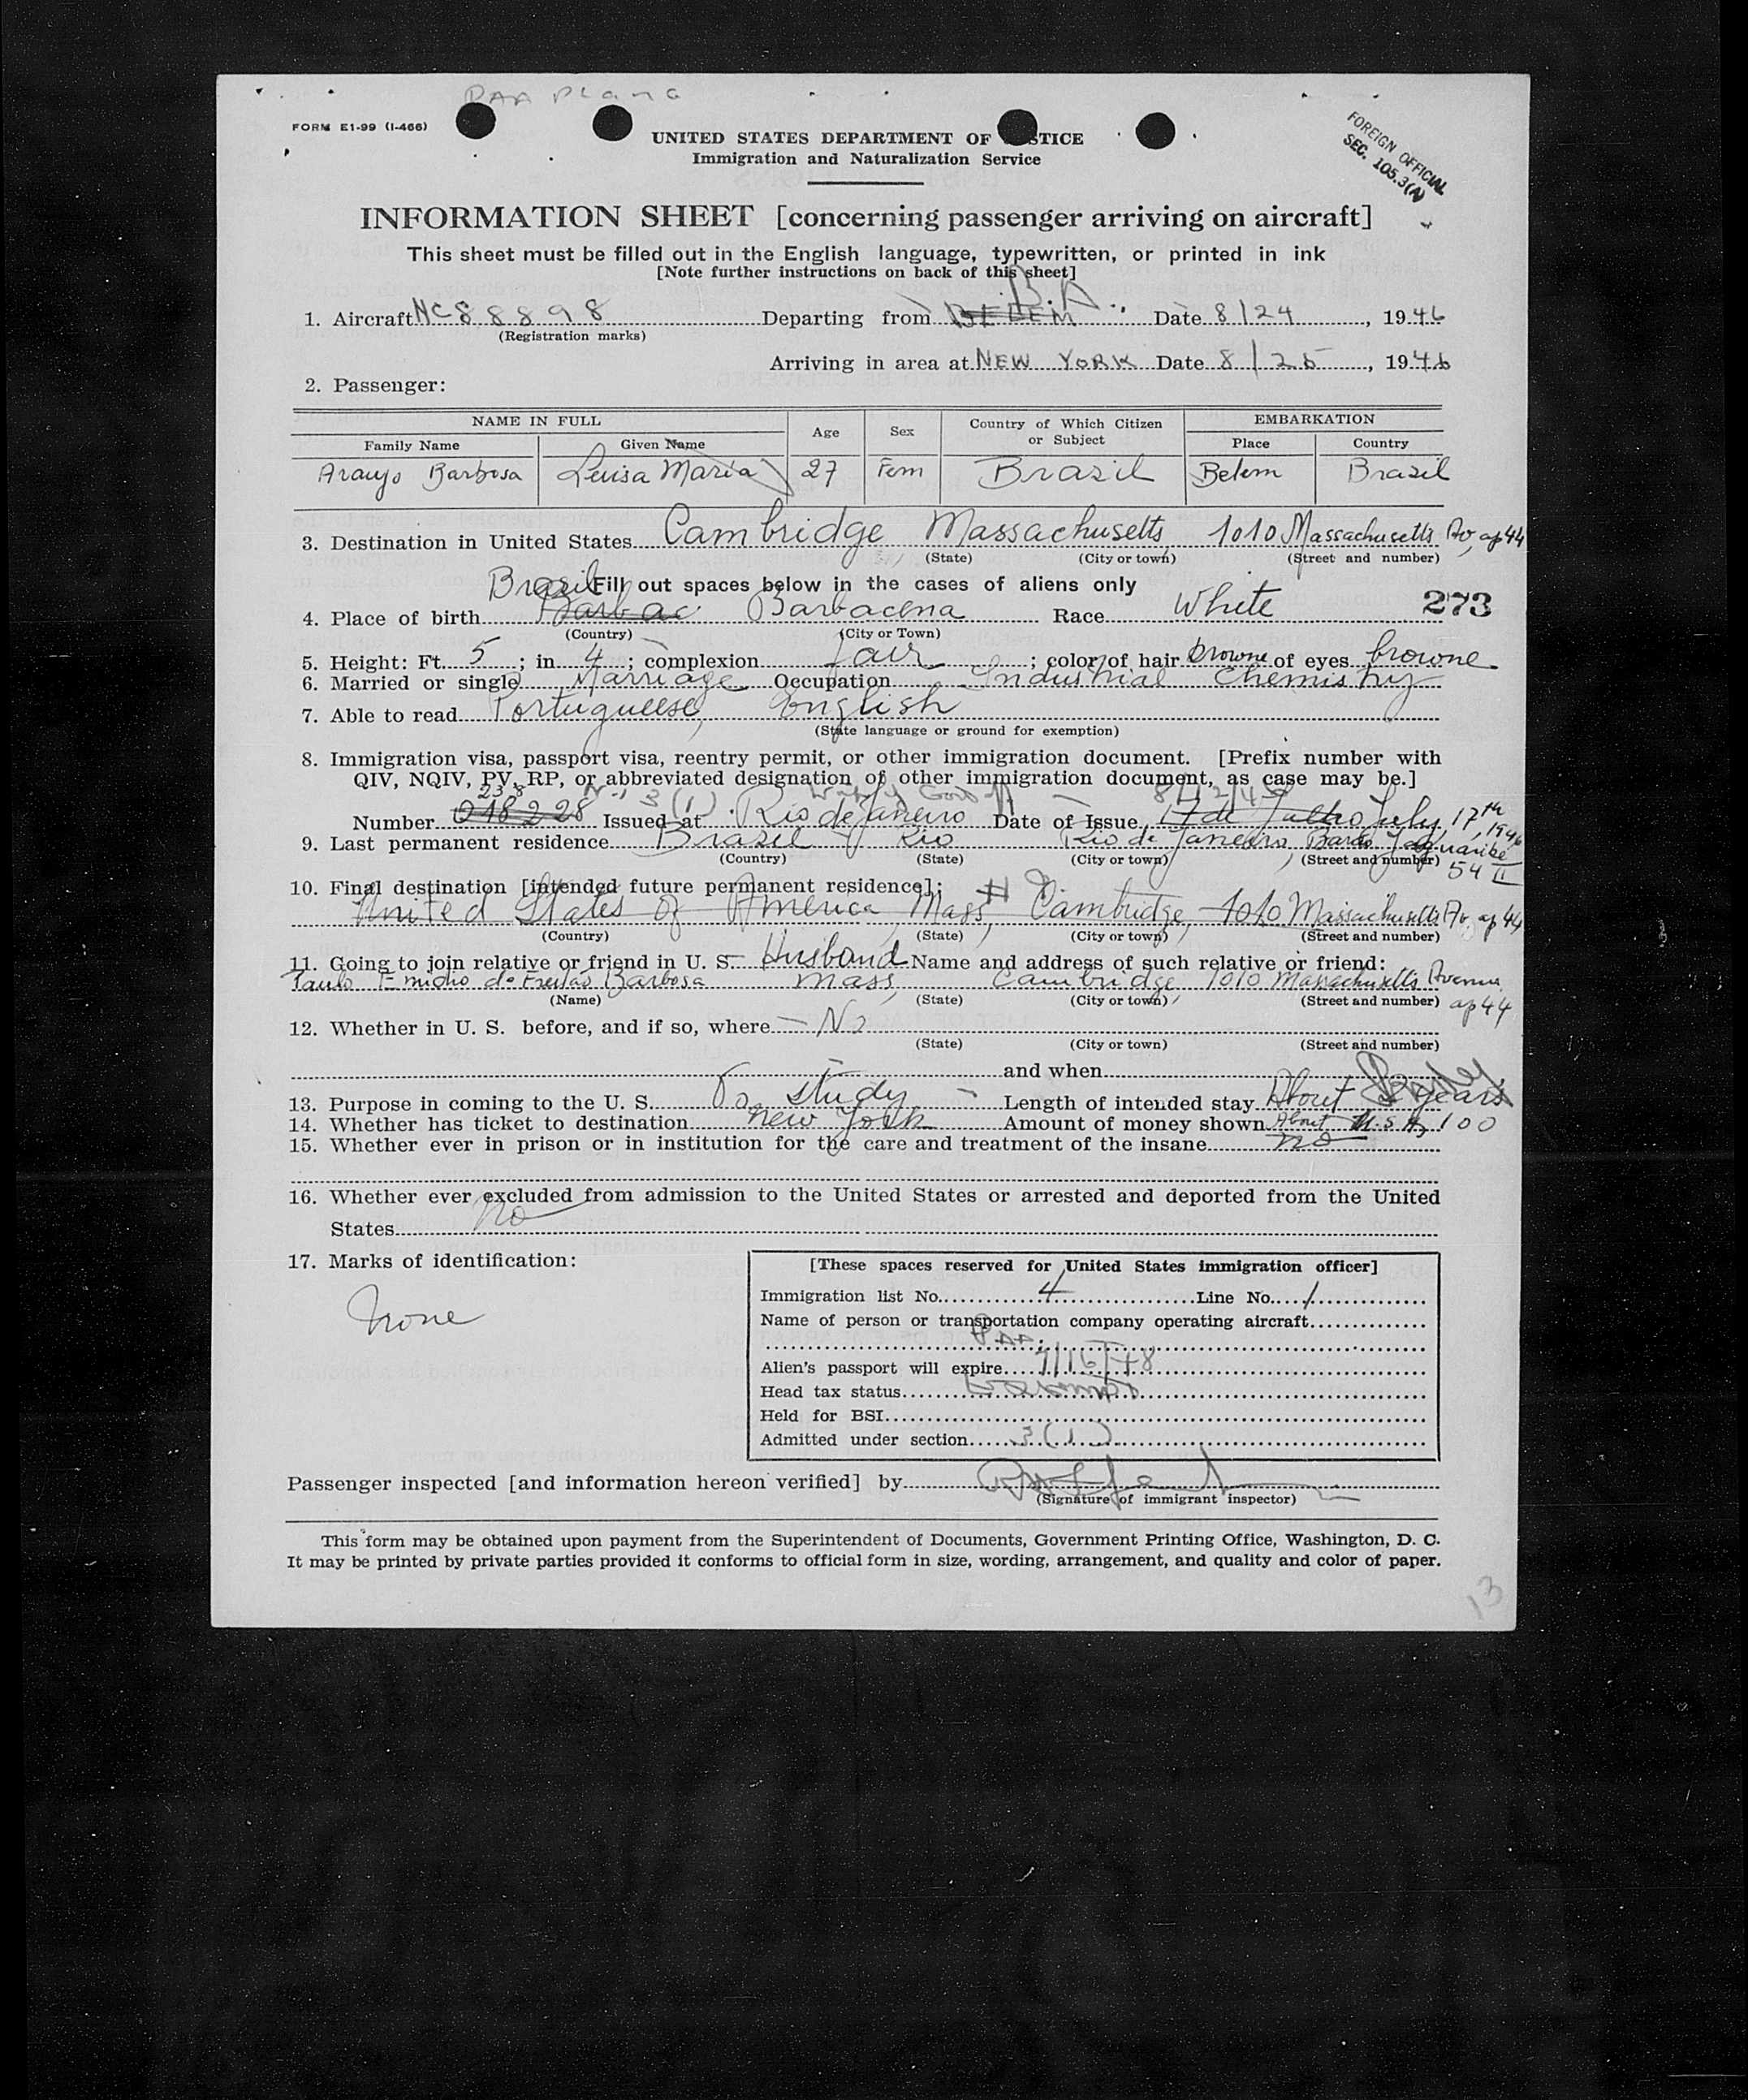 PAA Plane
FORM E1-99 (I-466)
UNITED STATES DEPARTMENT OF STICE
Immigration and Naturalization Service
FOREIGN OFFICIAL
SEC. 105.3(A)
INFORMATION SHEET [concerning passenger arriving on aircraft]
This sheet must be filled out in the English language, typewritten, or printed in ink
[Note further instructions on back of this sheet]
B.A.
1. Aircraft NC 88898 Departing from BELEM Date 8/24, 1946
(Registration marks)
Arriving in area at NEW YORK Date 8/25, 1946
2. Passenger:
NAME IN FULL Age Sex Country of Which Citizen or Subject EMBARKATION
Family Name Given Name Place Country
Araujo Barbosa Luisa Maria 27 Fem Brasil Belem Brasil
3. Destination in United States Cambridge Massachusetts 1010 Massachusetts Av, ap 44
(State) (City or town) (Street and number)
Brasil Fill out spaces below in the cases of aliens only
4. Place of birth Barbac Barbacena Race White 273
(Country) (City or Town)
5. Height: Ft. 5; in 4; complexion fair; color of hair browne of eyes browne
6. Married or single Marriage Occupation Industrial Chemistry
7. Able to read Portugueese, English
(State language or ground for exemption)
8. Immigration visa, passport visa, reentry permit, or other immigration document. [Prefix number with
QIV, NQIV, PV, RP, or abbreviated designation of other immigration document, as case may be.]
238 3(1)
Number 018228 Issued at Rio de Janeiro Date of Issue, 17 de Julho July, 17th, 1946
9. Last permanent residence Brasil Rio Rio de Janeiro, Barão Jaguaribe
(Country) (State) (City or town) (Street and number) 54 II
10. Final destination [intended future permanent residece]:
United States of America, Mass, Cambridge, 1010 Massachusetts Av ap 44
(Country) (State) (City or town) (Street and number)
11. Going to join relative or friend in U. S. Husband Name and address of such relative or friend:
Paulo Emidio de Freitas Barbosa Mass, Cambridge 1010 Massachusetts Avenue
(Name) (State) (City or town) (Street and number) ap 44
12. Whether in U. S. before, and if so, where — No
(State) (City or town) (Street and number)
and when
13. Purpose in coming to the U. S. To study — Length of intended stay About 2 years
14. Whether has ticket to destination New York Amount of money shown About U.S.A, 100
15. Whether ever in prison or in institution for the care and treatment of the insane no
16. Whether ever excluded from admission to the United States or arrested and deported from the United
States no
17. Marks of identification:
None
[These spaces reserved for United States immigration officer]
Immigration list No. 4 Line No. 1
Name of person or transportation company operating aircraft
PAA
Alien's passport will expire 7/16/48
Head tax status
Held for BSI
Admitted under section 3(1)
Passenger inspected [and information hereon verified] by
(Signature of immigrant inspector)
This form may be obtained upon payment from the Superintendent of Documents, Government Printing Office, Washington, D. C.
It may be printed by private parties provided it conforms to official form in size, wording, arrangement, and quality and color of paper.
13